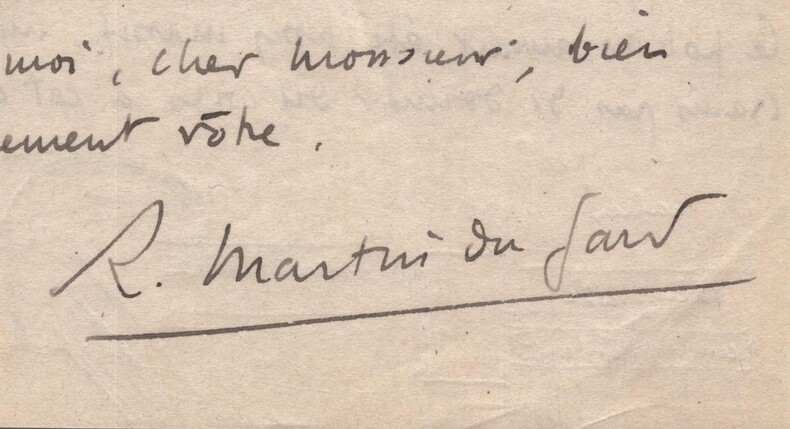 moi, cher Monsieur, bien
ement vôtre.
R. Martin du Gard